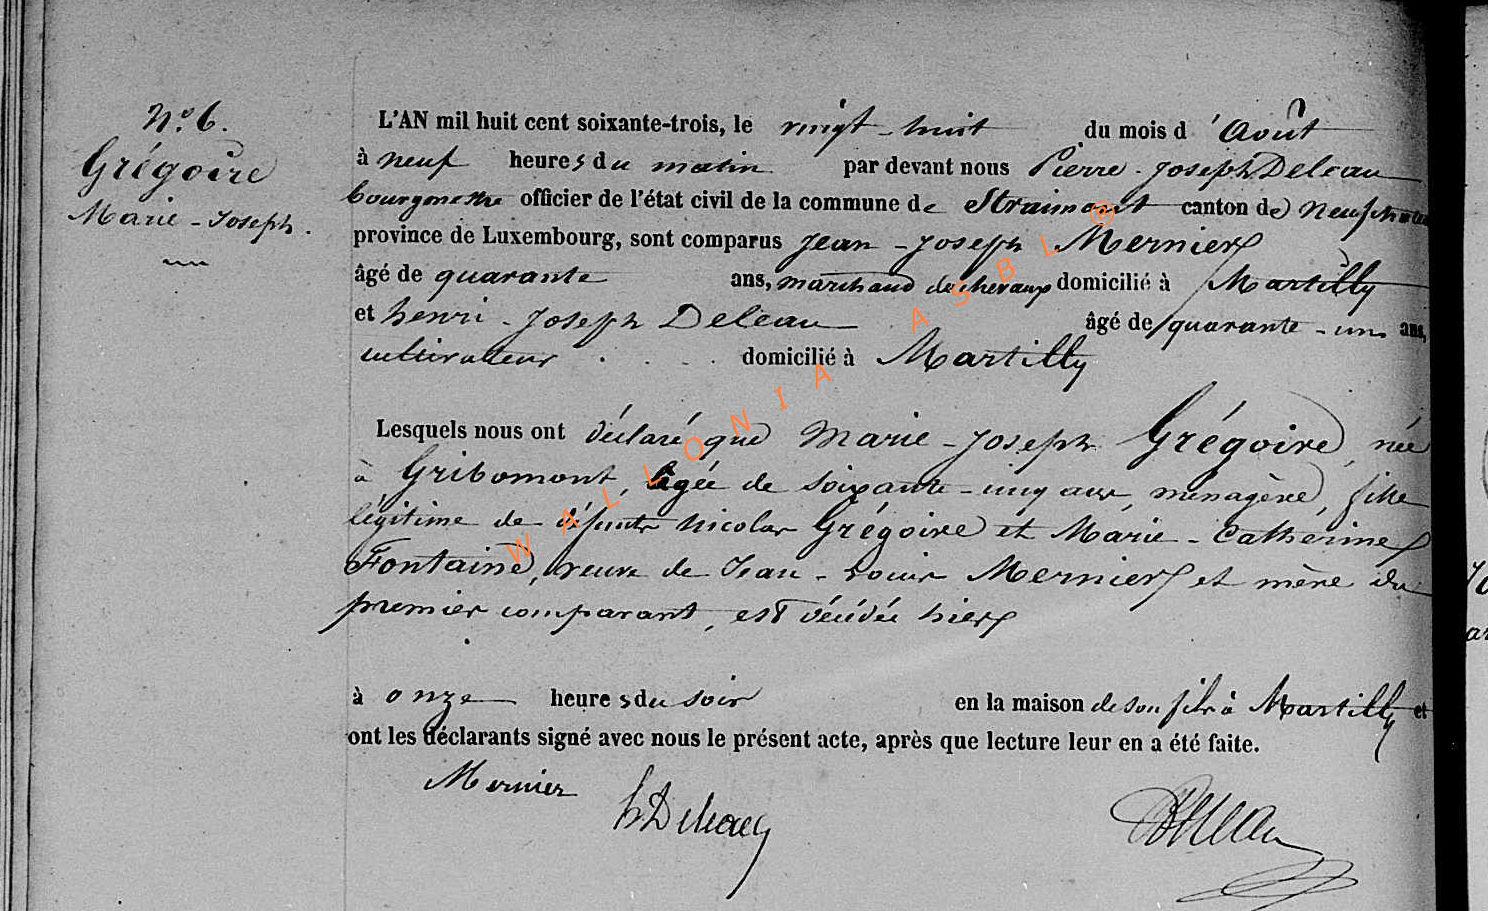 N.º 6.
Grégoire
Marie-Joseph.
L'AN mil huit cent soixante-trois, le vingt-huit du mois d'Août
à neuf heures du matin par devant nous Pierre-Joseph Deleau
bourgmestre officier de l'état civil de la commune de Straimont canton de Neufchateau
province de Luxembourg, sont comparus Jean-Joseph Mernier
âgé de quarante ans, marchand de chevaux domicilié à Martilly
et henri-Joseph Deleau âgé de quarante-un ans,
cultivateur domicilié à Martilly
Lesquels nous ont déclaré que Marie-Joseph Grégoire, née
à Gribomont, âgée de soixante-cinq ans ménagère, fille
légitime de défunts Nicolas Grégoire et Marie-Catherine
Fontaine, veuve de Jean-Louis Mernier et mère du
premier comparant, est décédée hier
à onze heures du soir en la maison de son fils à Martilly et
ont les déclarants signé avec nous le présent acte, après que lecture leur en a été faite.
Mernier hDeleau Deleau
WALLONIA ASBL ®